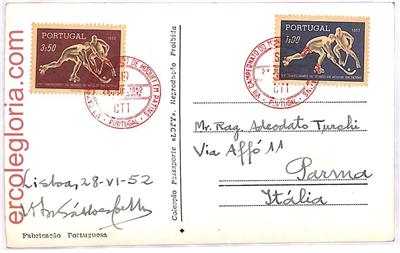 PORTUGAL
3$50
1952
PORTUGAL
1$00
1952
CTT
PORTUGAL
CAMPEONATO DO
CTT
PORTUGAL
ercolegloria.com
Colecção Passaporte «LOTY». Reprodução Proibida
Mr. Rag. Adeodato Turchi
Via Affó 11
Parma
Itália
Lisboa, 28-VI-52
Fabricação Portuguesa